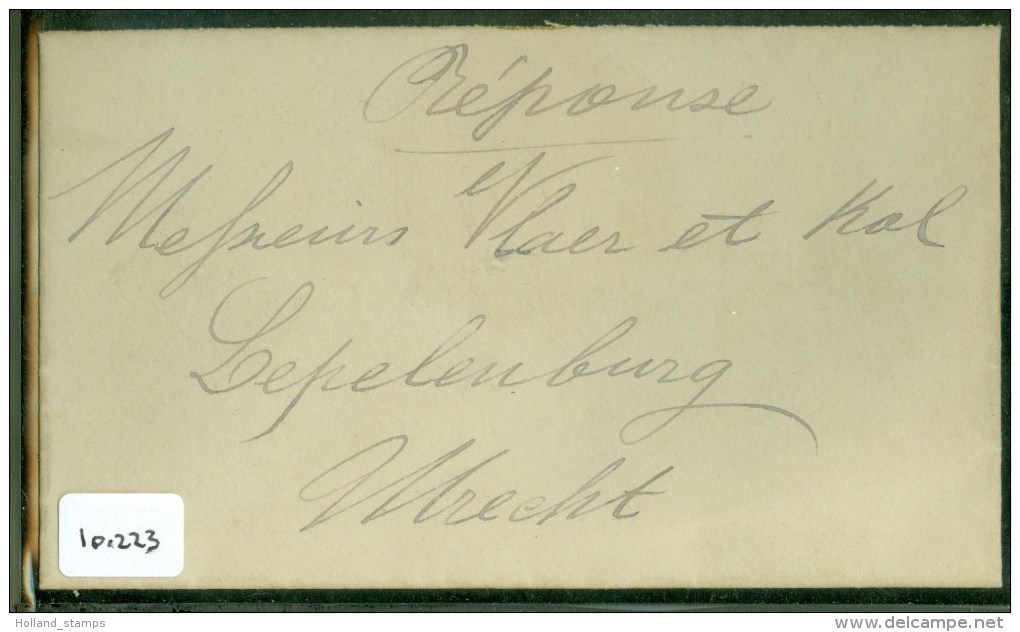 Réponse
Messieurs Vlaer et Kol
Lepelenburg
Utrecht
10.223
Holland_stamps
www.delcampe.net